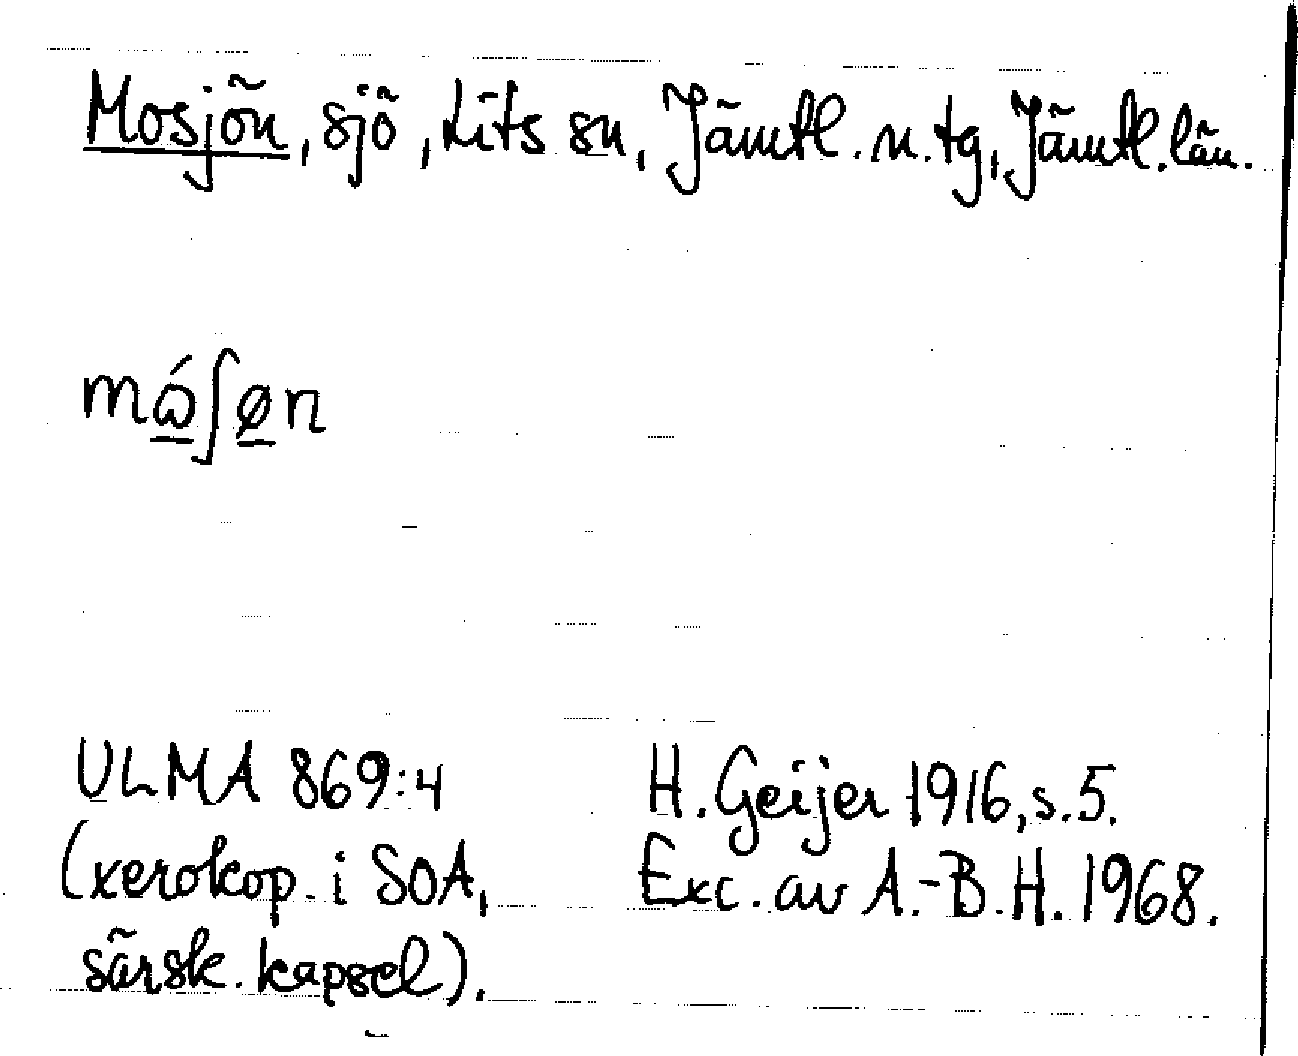 Mosjön, sjö, Lits sn, Jämtl. n. tg, Jämtl. län.
mώʃøn
ULMA 869:4
(xerokop. i SOA,
särsk. kapsel).
H. Geijer 1916, s. 5.
Exc. av A.-B. H. 1968.